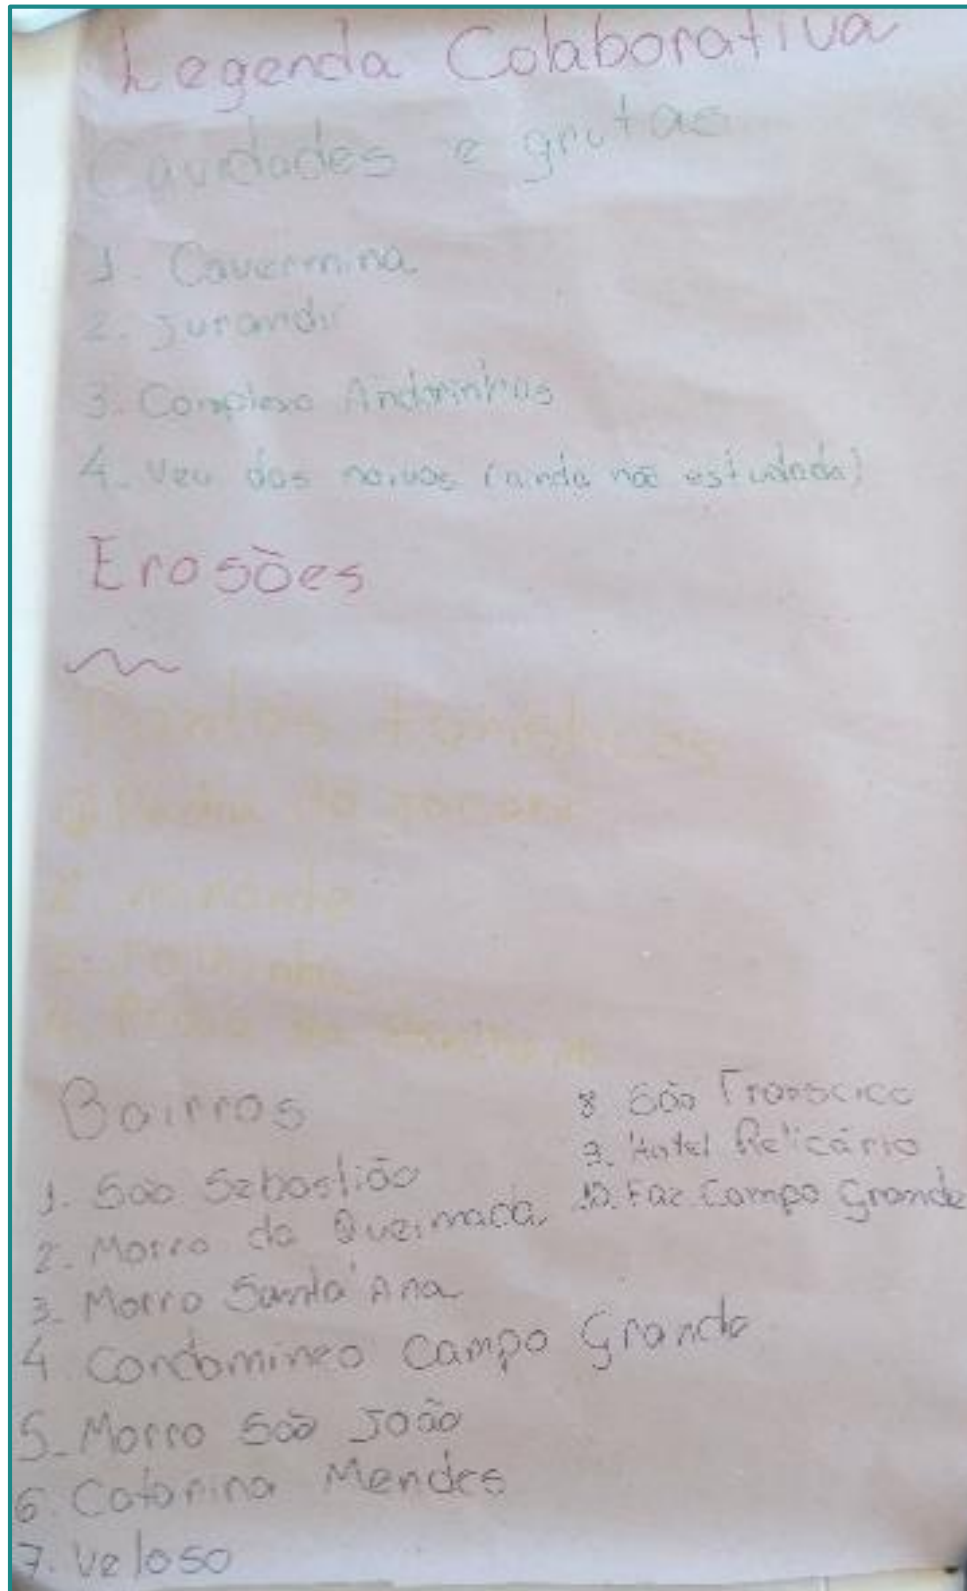 Legenda Colaborativa
Cavidades e grutas
1. Caverninha
2. Jurandir
3. Complexo Andorinhas
4. Veu dos noivos (ainda não estudada)
Erosões
Pontos turísticos
1 Pedra do jacaré
2
3
4.
Bairros
1. São Sebastião
2. Morro da Queimada
3. Morro Santa'Ana
4. Condomineo Campo Grande
5. Morro São João
6. Catarina Mendes
7. Veloso
8 São Franscico
9. Hotel Relicário
10. Faz. Campo Grande